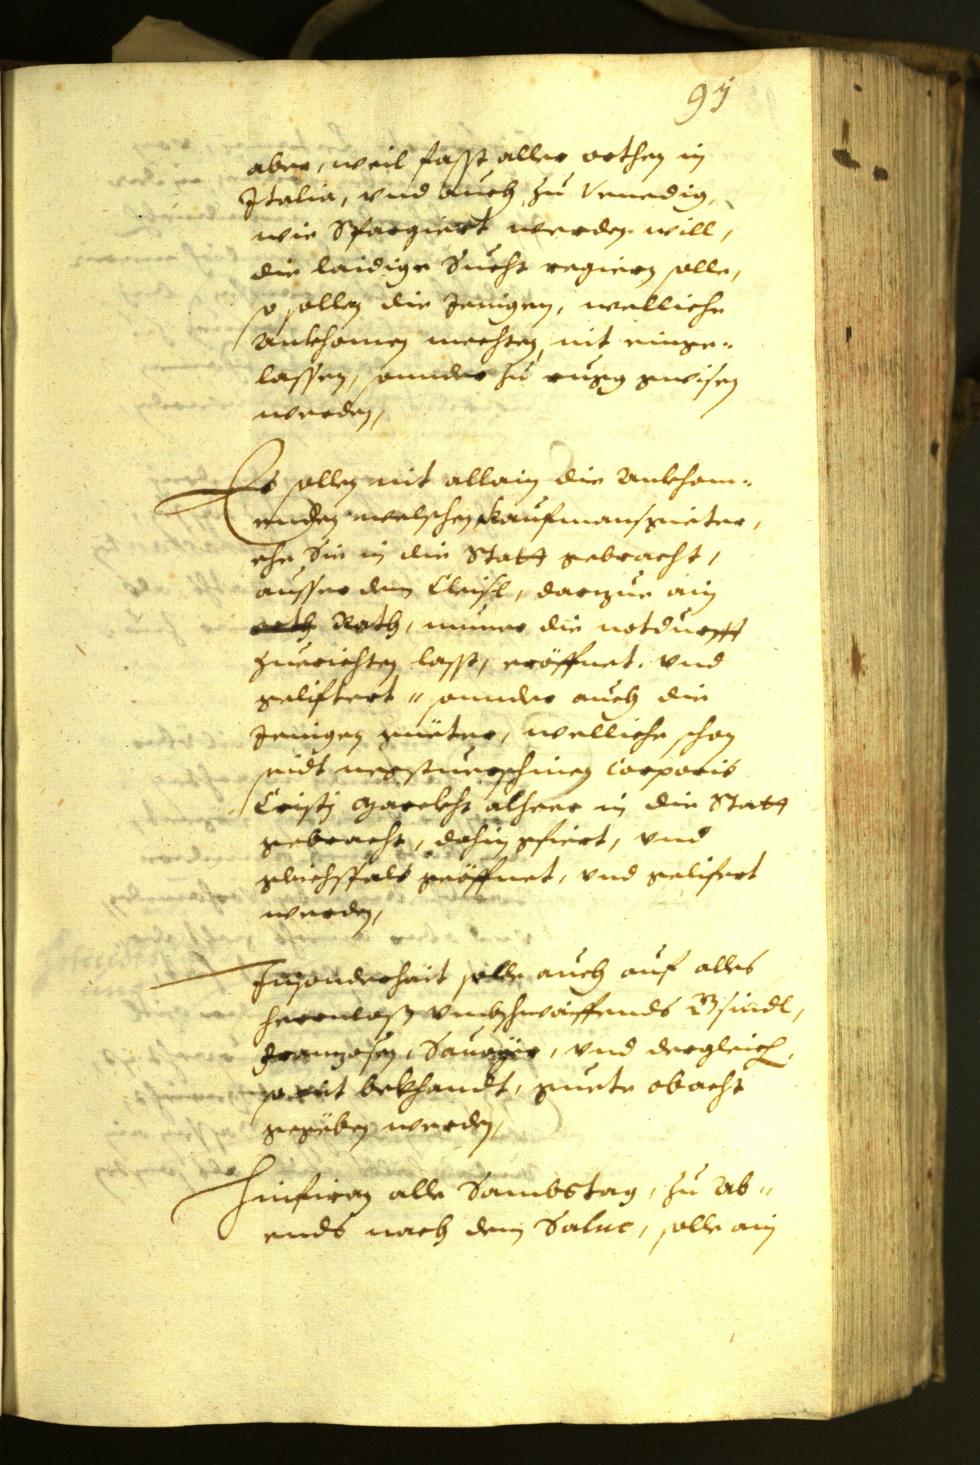 91
aber, weil fasst aller orthen in
Italia, vnd auch zu Venedig,
wie Spargiert werden will,
die laidige Sucht regiern solle,
so sollen die Jenigen, welliche
Ankhomen mechten, nit einge¬
lassen, sonnder zu rugg gwisen
werden,
Es sollen nit allain die Ankhom¬
enden welschen Kaufmansgüeter,
ehe Sie in die Statt gebracht,
ausser dem Eeisl, darzue ain
Rath, immer die notdurfft
zuerichten lasst, eröffnet, vnd
geliftert, sonnder auch die
Jenigen güeter, welliche schon
seidt negstuerschinen Corporis
Cristj Marckht alheer in die Statt
gebracht, dahin gfiert, vnd
gleichsfals geöffnet, vnd gelifert
werden,
Insonderhait solle auch auf alles
herrnloß vmbschwaiffends Gsindl,
Franzosen, Sauoyer, vnd dergleich,
so nit bekhandt, guete obacht
gegeben werden,
Hinfiran alle Sambstag, zu Ab¬
ends nach dem Salue, solle ain